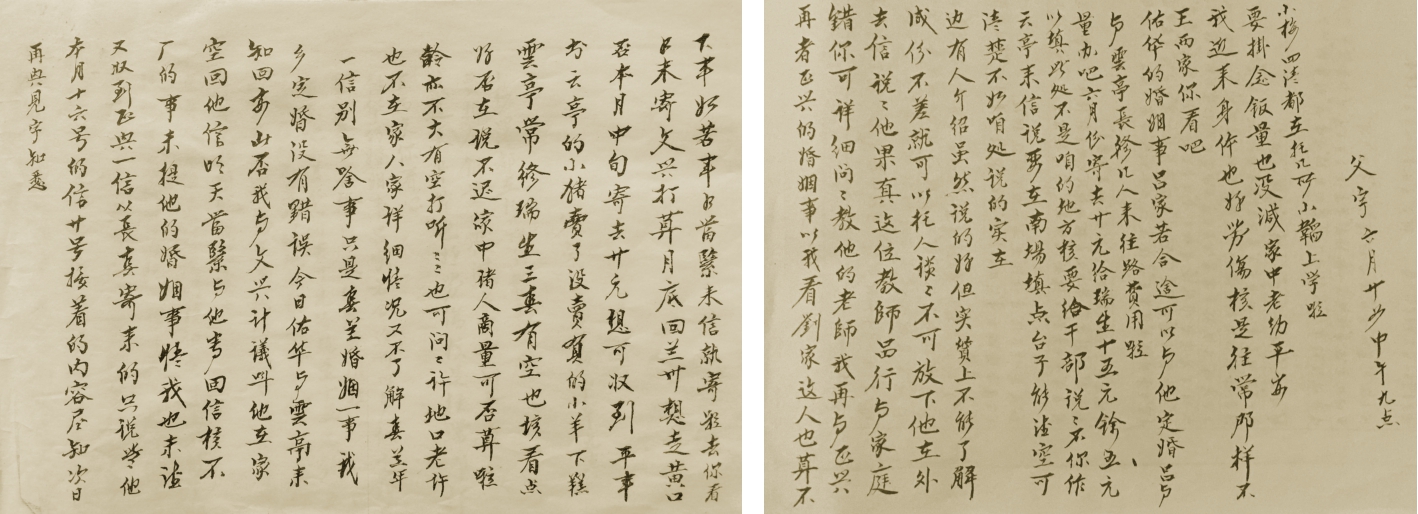 再兴見字知悉
本月十六号的信廿号接着的内容尽知次日
又収到正兴一信以長喜寄来的只说些他
厂的事未提他的婚姻事情我也未法
空回他信昨天當緊与他書回信核不
知回家此否我与文兴计議叫他在家
乡定婚没有錯误今日佑华与雲亭来
一信别無啥事只是喜兰婚姻一事我
也不在家人家详细情况又不了解喜兰年
龄亦不大有空打听々也可问々許地口老許
好否在说不迟家中猪人商量可否算啦
雲亭常修瑞生三喜有空也核看点
另云亭的小猪賣了没賣買的小羊下羔
否本月中旬寄去廿元想可収到 平事
只未寄文兴打算月底回兰州想走黄口
下車如若事另當緊来信執寄歨去你看
再者正兴的婚姻事以我看劉家这人也算不
錯你可详细问々教他的老師我再与正兴
去信说々他果真这位教師品行与家庭
成份不差就可以托人谈々不可放下他在外
边有人介绍虽然说的好但实質上不能了解
清楚不如咱处说的实在
云亭来信说要在南場填点台子能法空可
以填此处不是咱的地方核要给干部说々不你作
量力吧六月份寄去廿元给瑞生十五元餘五元
与雲亭長餘几人来往路費用啦
佑华的婚姻事吕家若合途可以与他定婚吕与
王两家你看吧
我近来身体也好劳傷核是往常那样不
要掛念飯量也没減家中老幼平安
小楼四清都在托儿所小韜上学啦
父字六月廿 中午九点